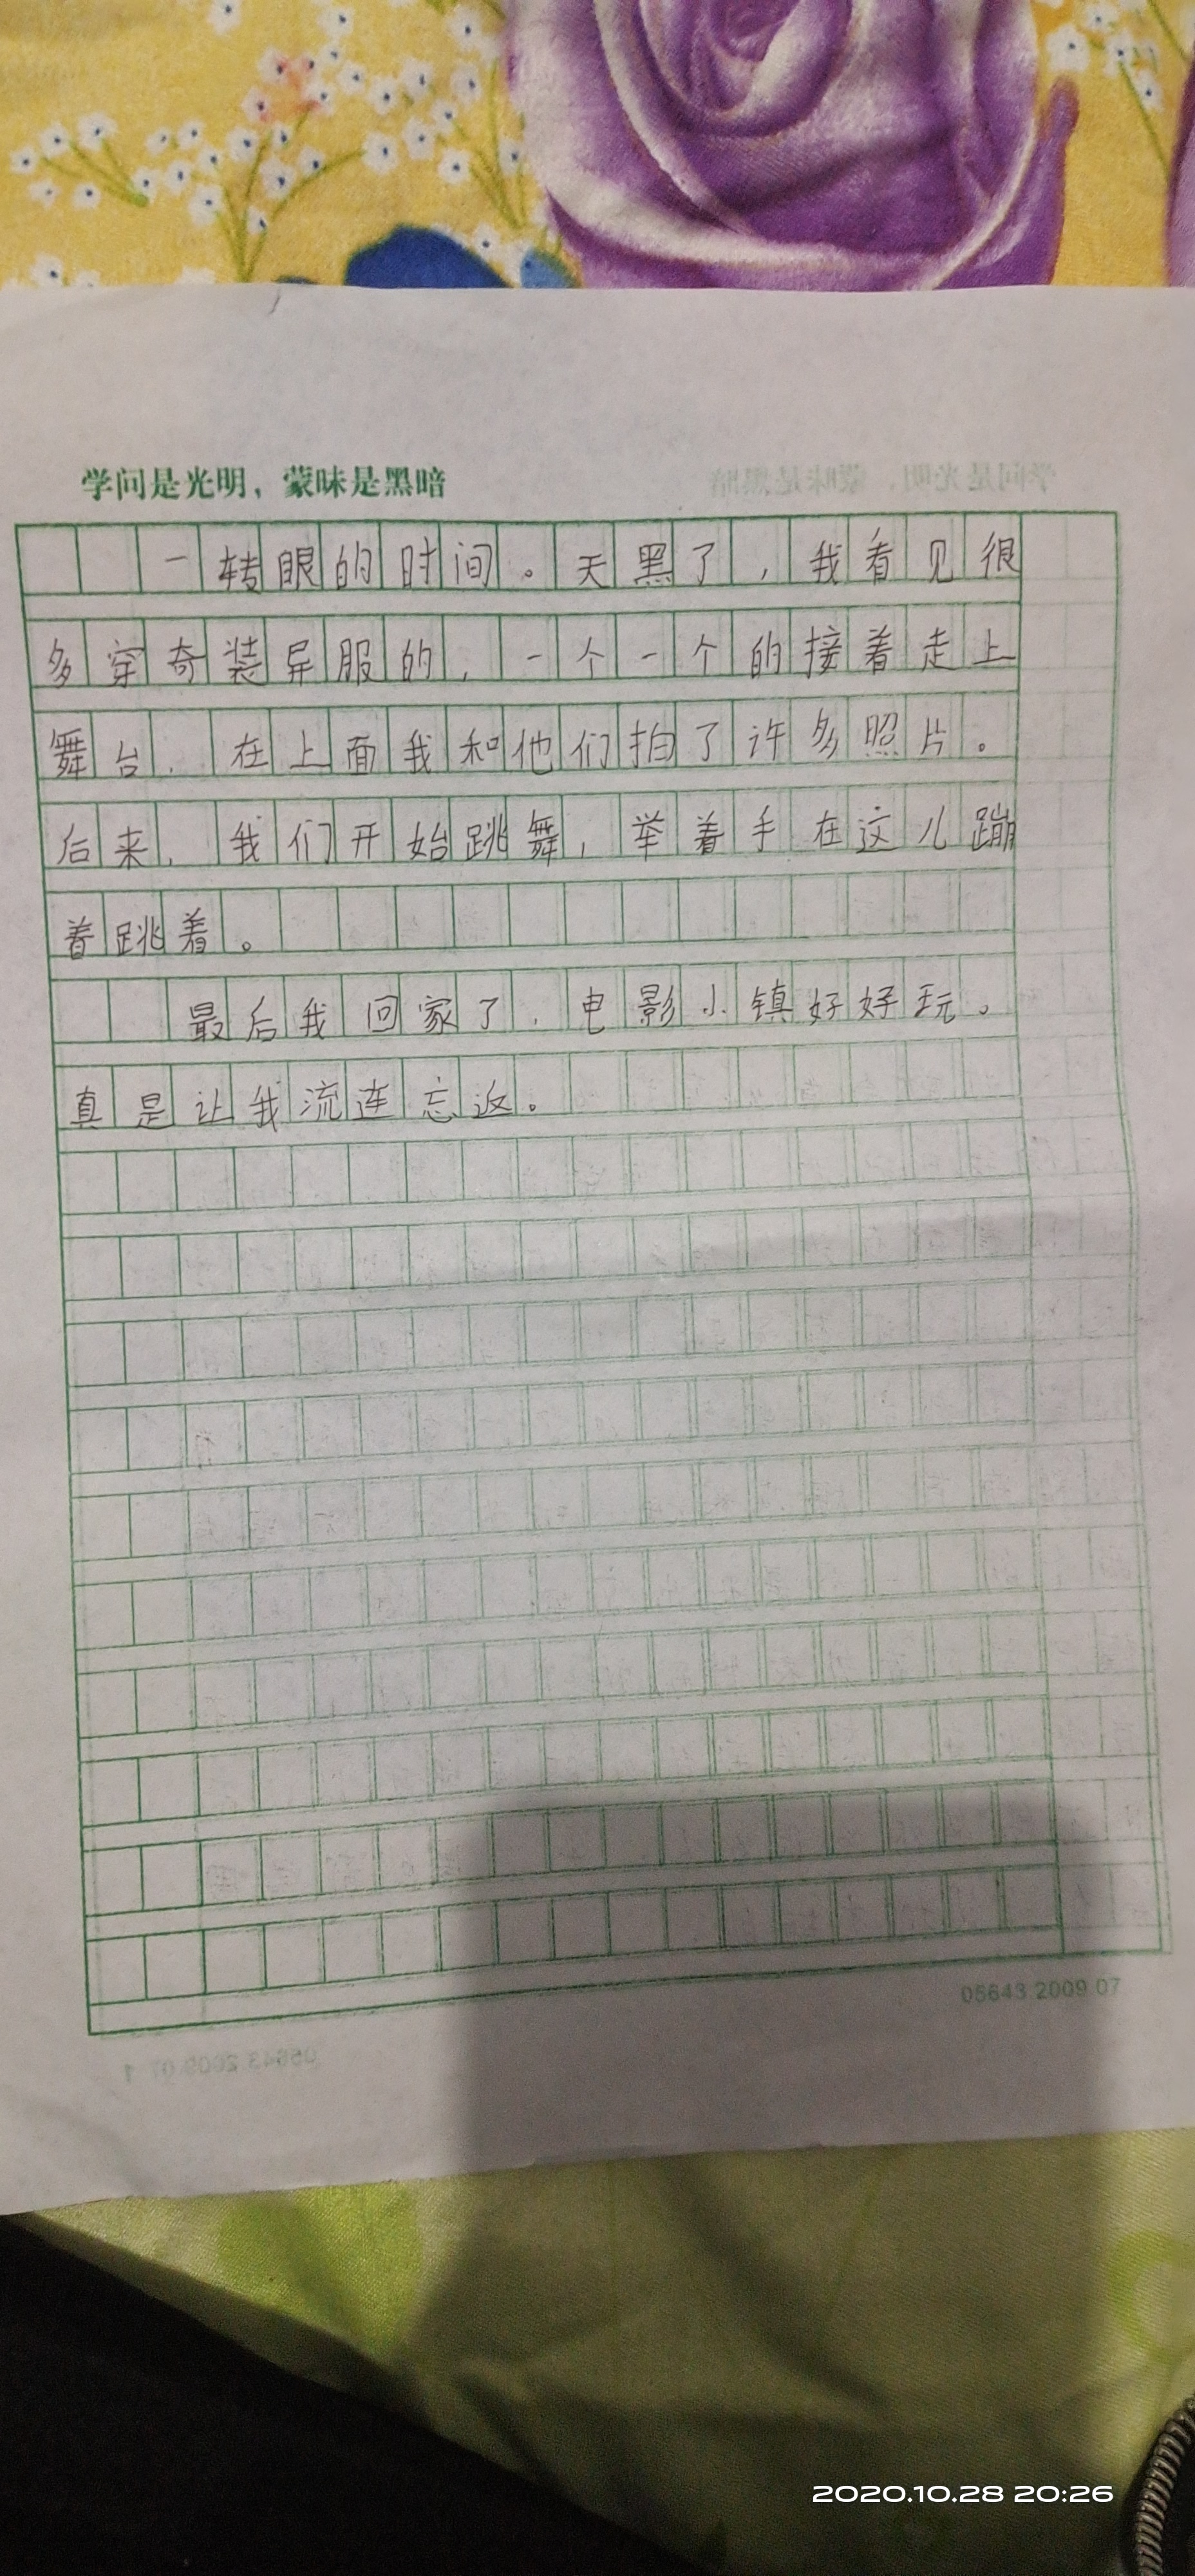 学问是光明，蒙昧是黑暗
一转眼的时间。天黑了，我看见很
多穿奇装异服的，一个一个的接着走上
舞台，在上面我和他们拍了许多照片。
后来，我们开始跳舞，举着手在这儿蹦
着跳着。
最后我回家了，电影小镇好好玩。
真是让我流连忘返。
05643.2009.07
2020.10.28 20:26